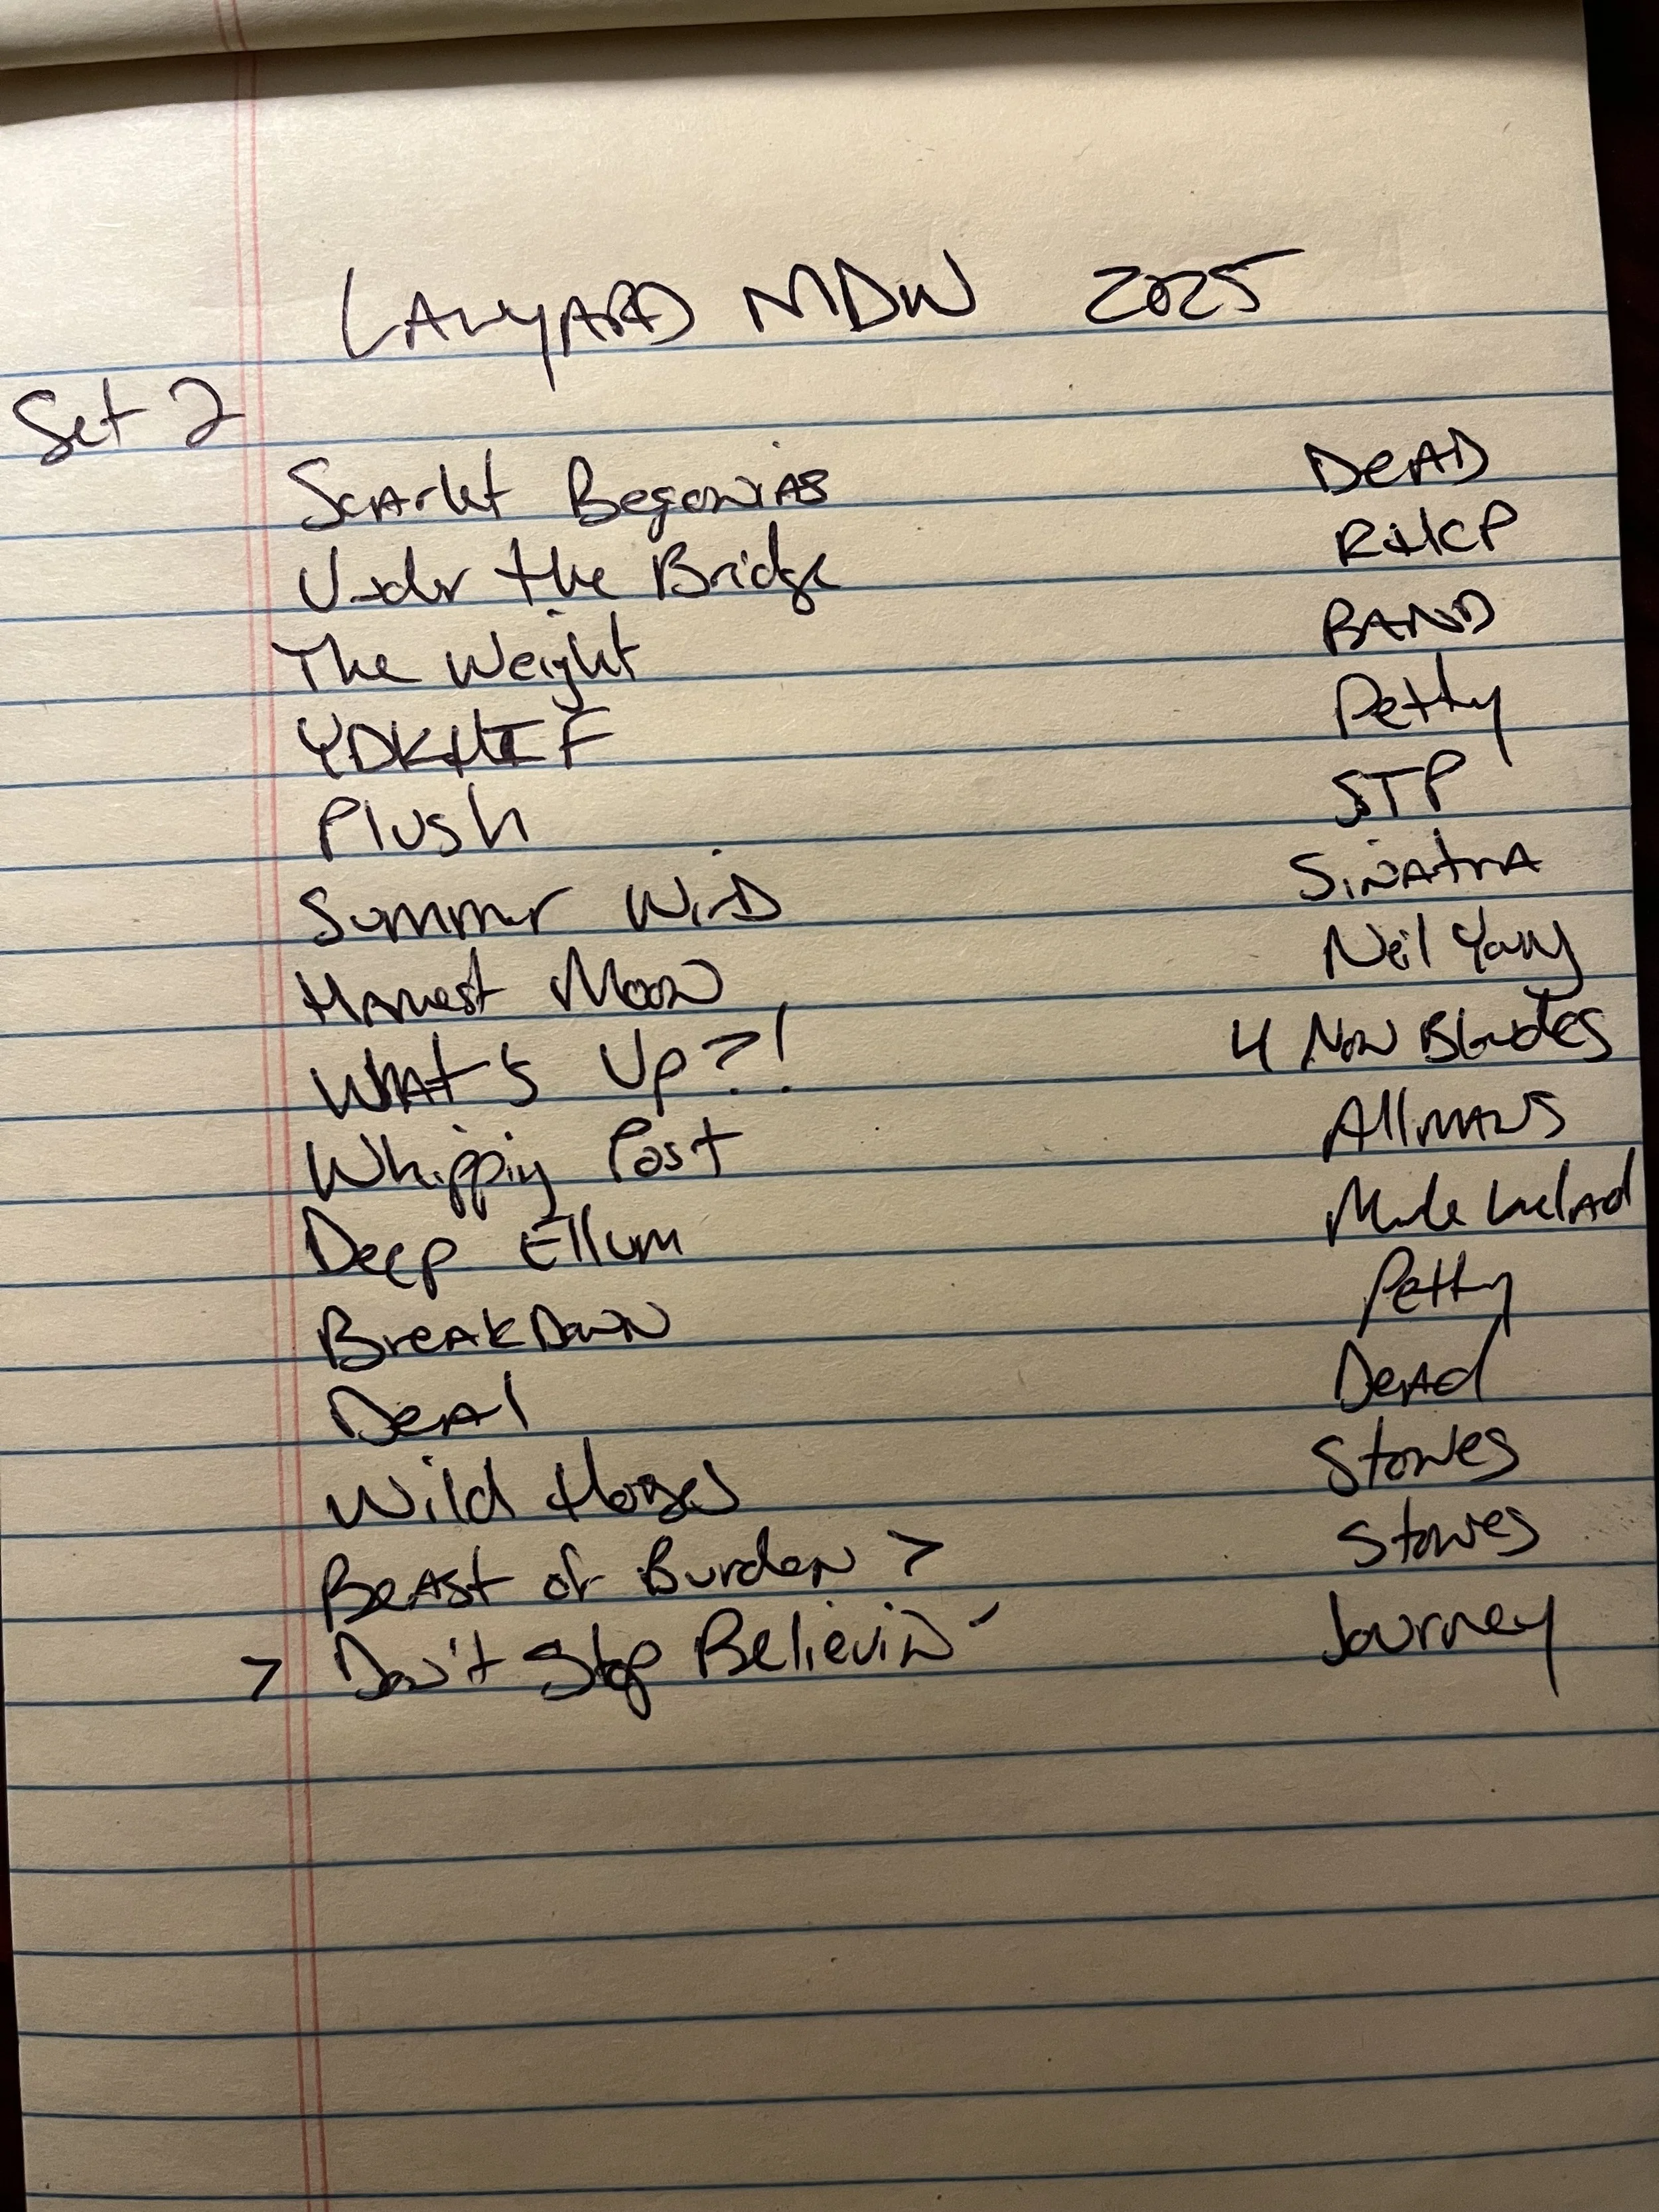 LANYARD MDW 2025
Set 2
Scarlet Begonias DEAD
Under the Bridge RHCP
The Weight BAND
YDKHIF Petty
Plush STP
Summer Wind Sinatra
Harvest Moon Neil Young
What's Up?! 4 Non Blondes
Whipping Post Allmans
Deep Ellum
Breakdown Petty
Deal Dead
Wild Horses Stones
Beast of Burden > Stones
> Don't Stop Believin' Journey